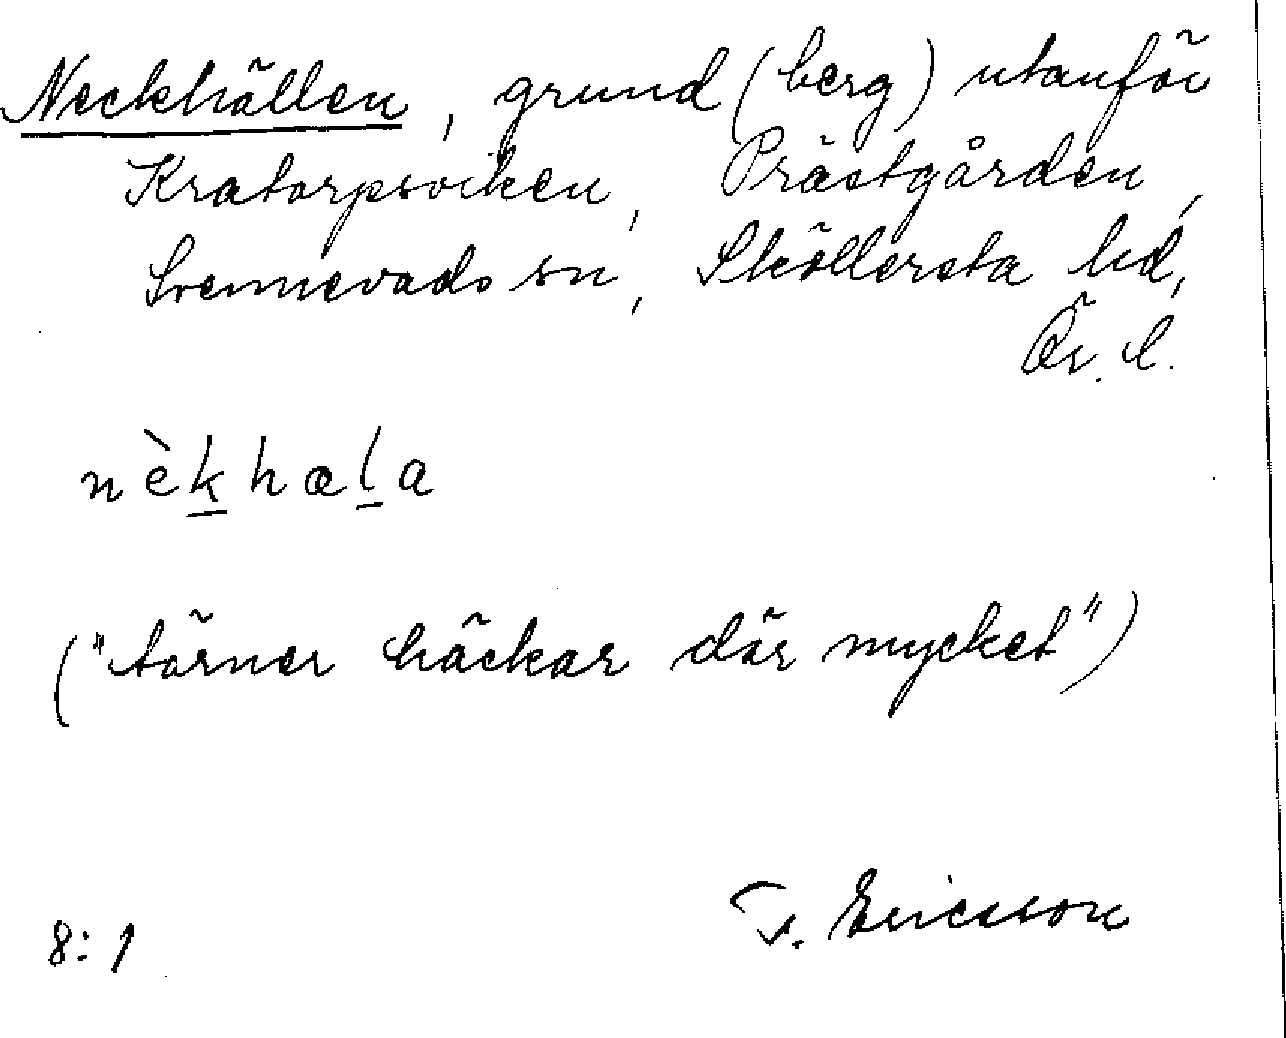 Neckhällen, grund (berg) utanför
Kratorpsviken, Prästgården,
Svennevads sn, Sköllersta hd,
Ör. l.
nèk̲hæl̲a
("törner häckar där mycket")
8:1
T. Ericsson